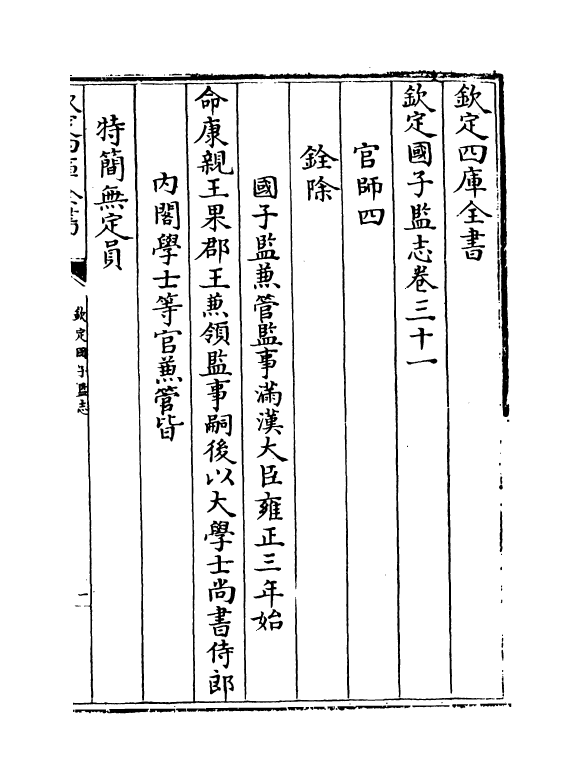 欽定四庫全書
欽定國子監志卷三十一
官師四
銓除
國子監兼管監事滿漢大臣雍正三年始
命康親王果郡王兼領監事嗣後以大學士尚書侍郎
内閣學士等官兼管皆
特簡無定員
欽定國子監志